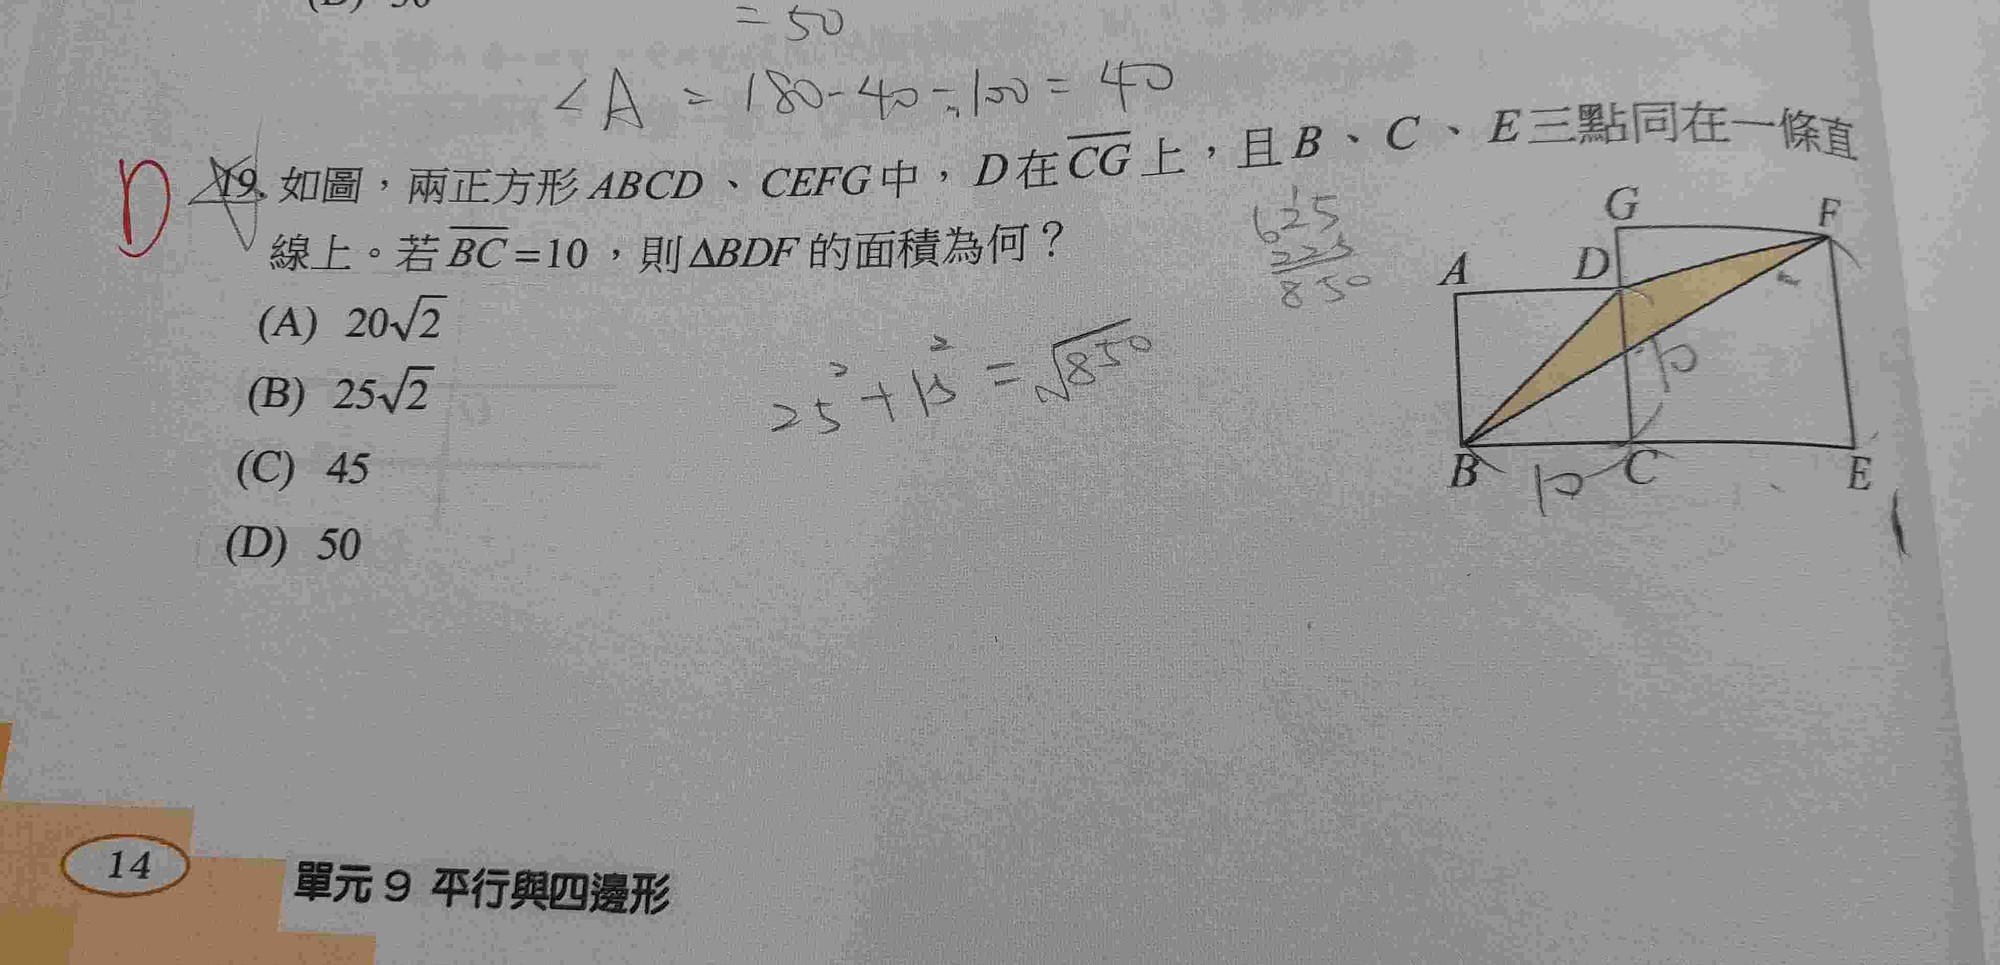 = 50
∠A = 180-40-100 = 40
D
19. 如圖，兩正方形 ABCD、CEFG中，D在CG上，且B、C、E三點同在一條直
線上。若BC=10，則ΔBDF的面積為何？
(A) 20√2
(B) 25√2
(C) 45
(D) 50
625
225
850
25² + 15² = √850
G F
A D
B C E
10
10
14
單元 9 平行與四邊形